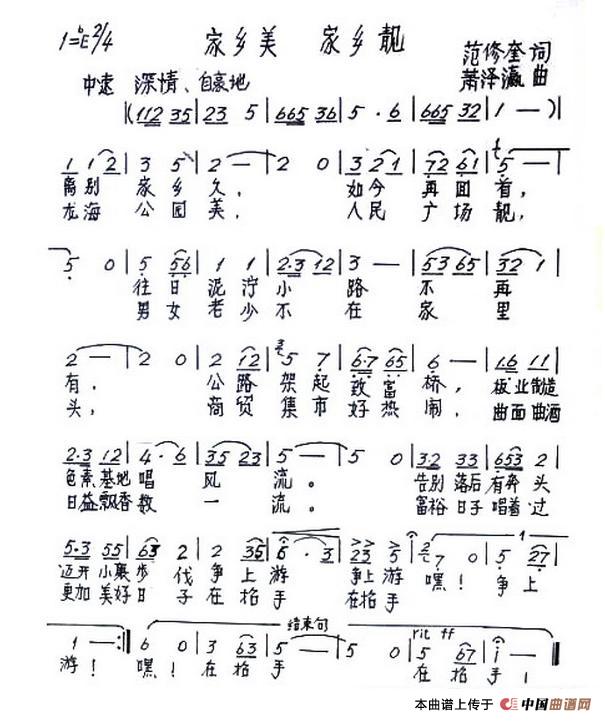 1=ᵇE 2/4
家乡美 家乡靓
范修奎 词
萧泽瀛 曲
中速 深情、自豪地
|(112 35|23 5|665 36|5 · 6|665 32|1 —)|
1 12|3 5|2 —|2 0|3 21|72 61|5 —|
离别 家乡久, 如今再回首,
龙海 公园美, 人民广场靓,
5 0|5 56|1 1|2·3 12|3 —|53 65|32 1|
往日泥泞小路不再
男女老少不在家里
2 —|2 0|2 12|5 7|6·7 65|6 —|16 11|
有, 公路架起致富桥, 板业制造
头, 商贸集市好热闹, 曲面曲酒
2·3 12|4 · 6|35 23|5 —|5 0|3·2 33|653 3|
色素基地唱风流。 告别落后有奔头
日益飘香数一流。 富裕日子唱着过
5·3 55|63 2|2 35|6 · 3|23 5|7 0|5 27|
迈开小襄步伐争上游 争上游 嘿! 争上
更加美好日子在抬手 在抬手
结束句
rit ff
1 —:|6 0|3 63|5 —|5 0|5 67|i —‖
游! 嘿! 在抬手 在抬手!
本曲谱上传于 中国曲谱网